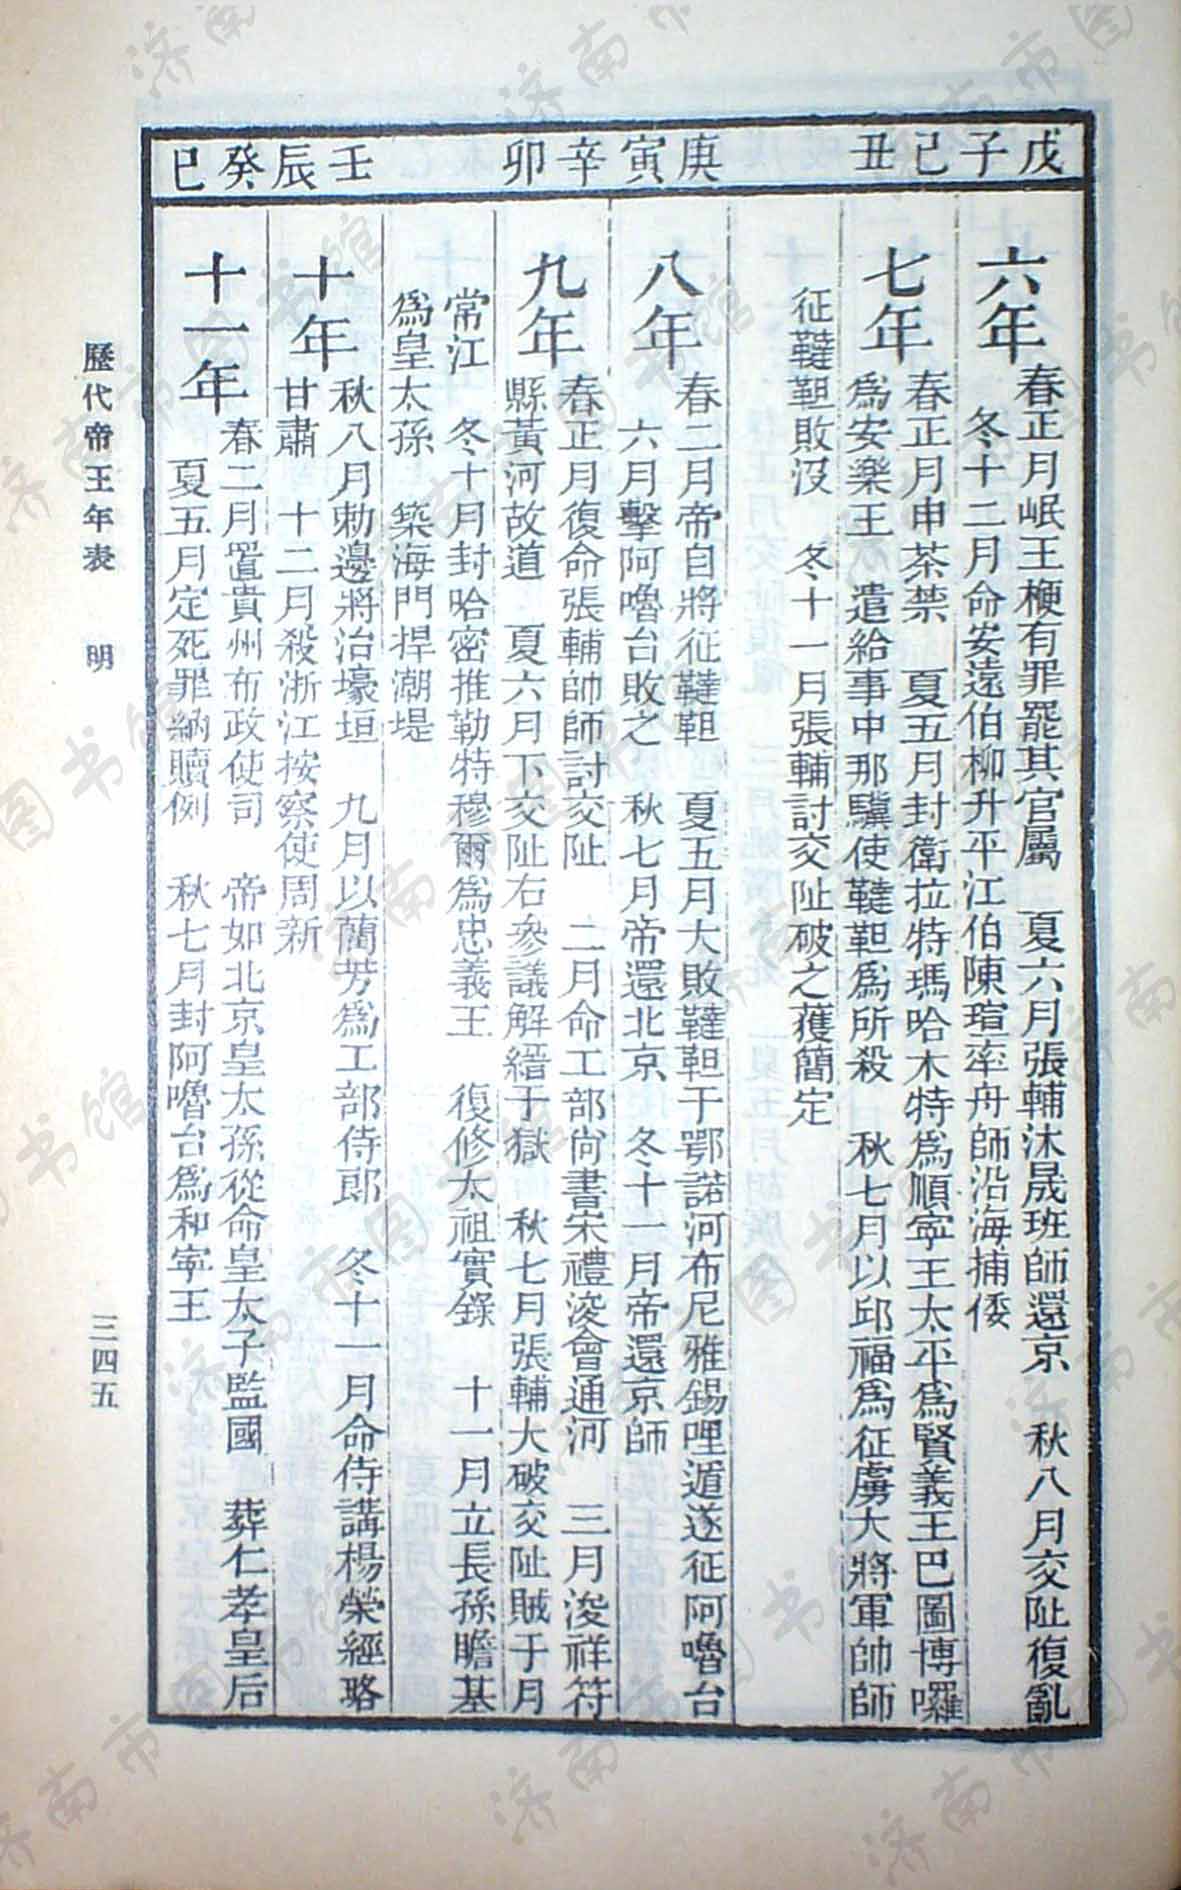 戊子己丑　庚寅辛卯　壬辰癸巳
六年　春正月岷王楩有罪罷其官屬　夏六月張輔沐晟班師還京　秋八月交阯復亂
冬十二月命安遠伯柳升平江伯陳瑄率舟師沿海捕倭
七年　春正月申茶禁　夏五月封衛拉特瑪哈木特爲順寧王太平爲賢義王巴圖博囉
爲安樂王　遣給事中那驥使韃靼爲所殺　秋七月以邱福爲征虜大將軍帥師
征韃靼敗沒　冬十一月張輔討交阯破之獲簡定
八年　春二月帝自將征韃靼　夏五月大敗韃靼于鄂諾河布尼雅錫哩遁遂征阿嚕台
六月擊阿嚕台敗之　秋七月帝還北京　冬十一月帝還京師
九年　春正月復命張輔帥師討交阯　二月命工部尚書宋禮浚會通河　三月浚祥符
縣黃河故道　夏六月下交阯右參議解縉于獄　秋七月張輔大破交阯賊于月
常江　冬十月封哈密推勒特穆爾爲忠義王　復修太祖實錄　十一月立長孫瞻基
爲皇太孫　築海門捍潮堤
十年　秋八月勅邊將治壕垣　九月以藺芳爲工部侍郎　冬十一月命侍講楊榮經略
甘肅　十二月殺浙江按察使周新
十一年　春二月置貴州布政使司　帝如北京皇太孫從命皇太子監國　葬仁孝皇后
夏五月定死罪納贖例　秋七月封阿嚕台爲和寧王
歷代帝王年表　明　三四五
济南市图书馆